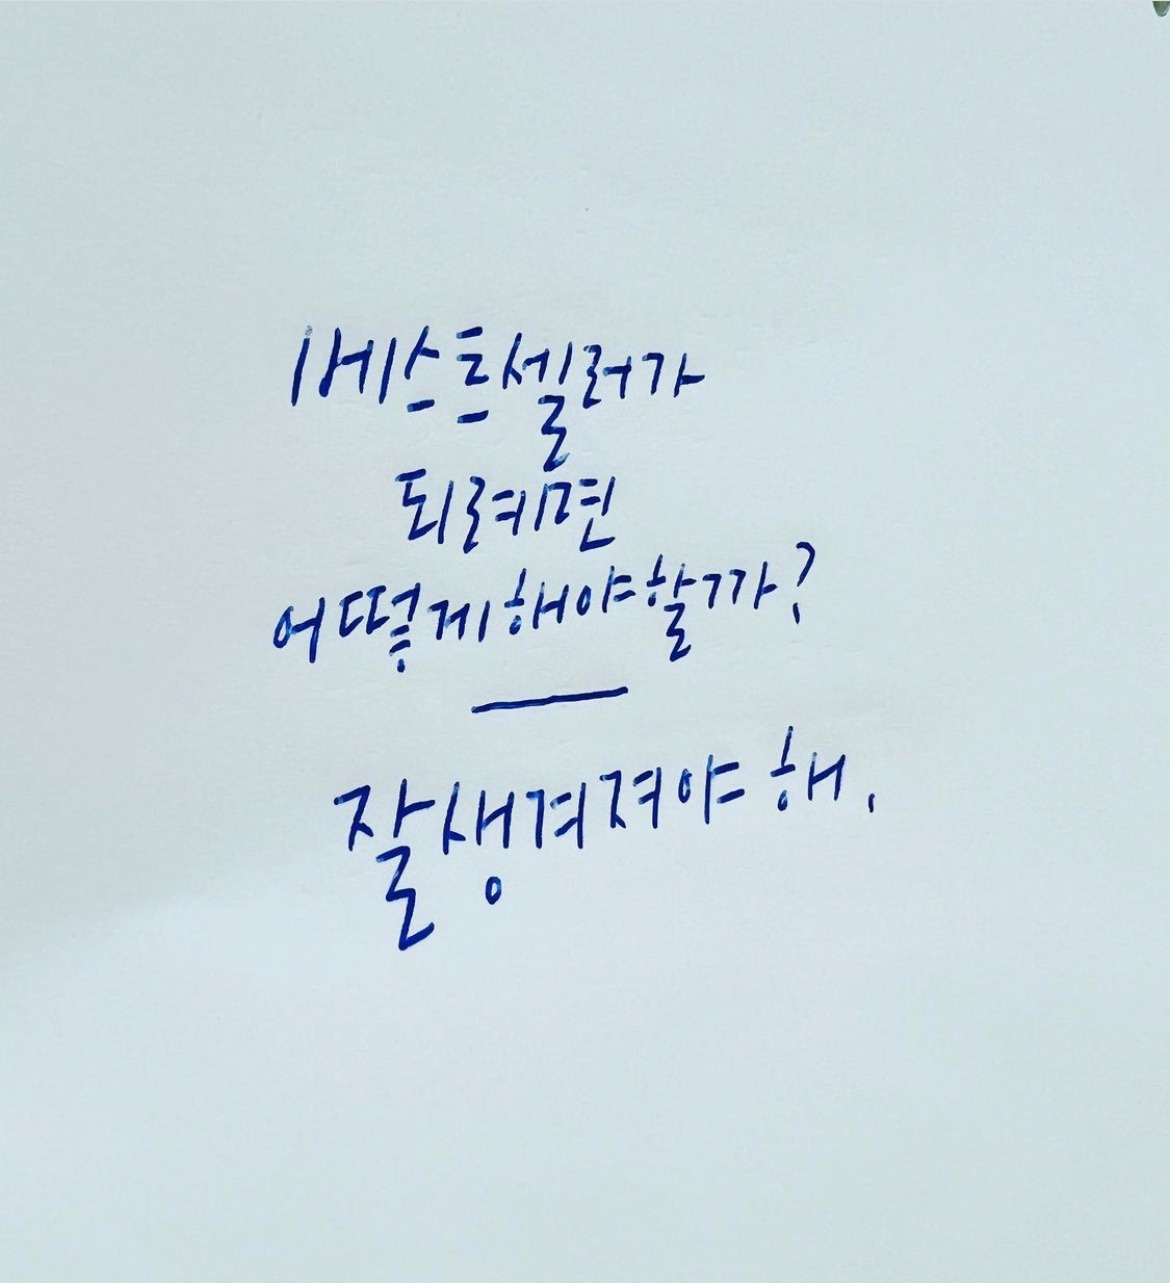 베스트셀러가
되려면
어떻게해야할까?
잘생겨져야 해.